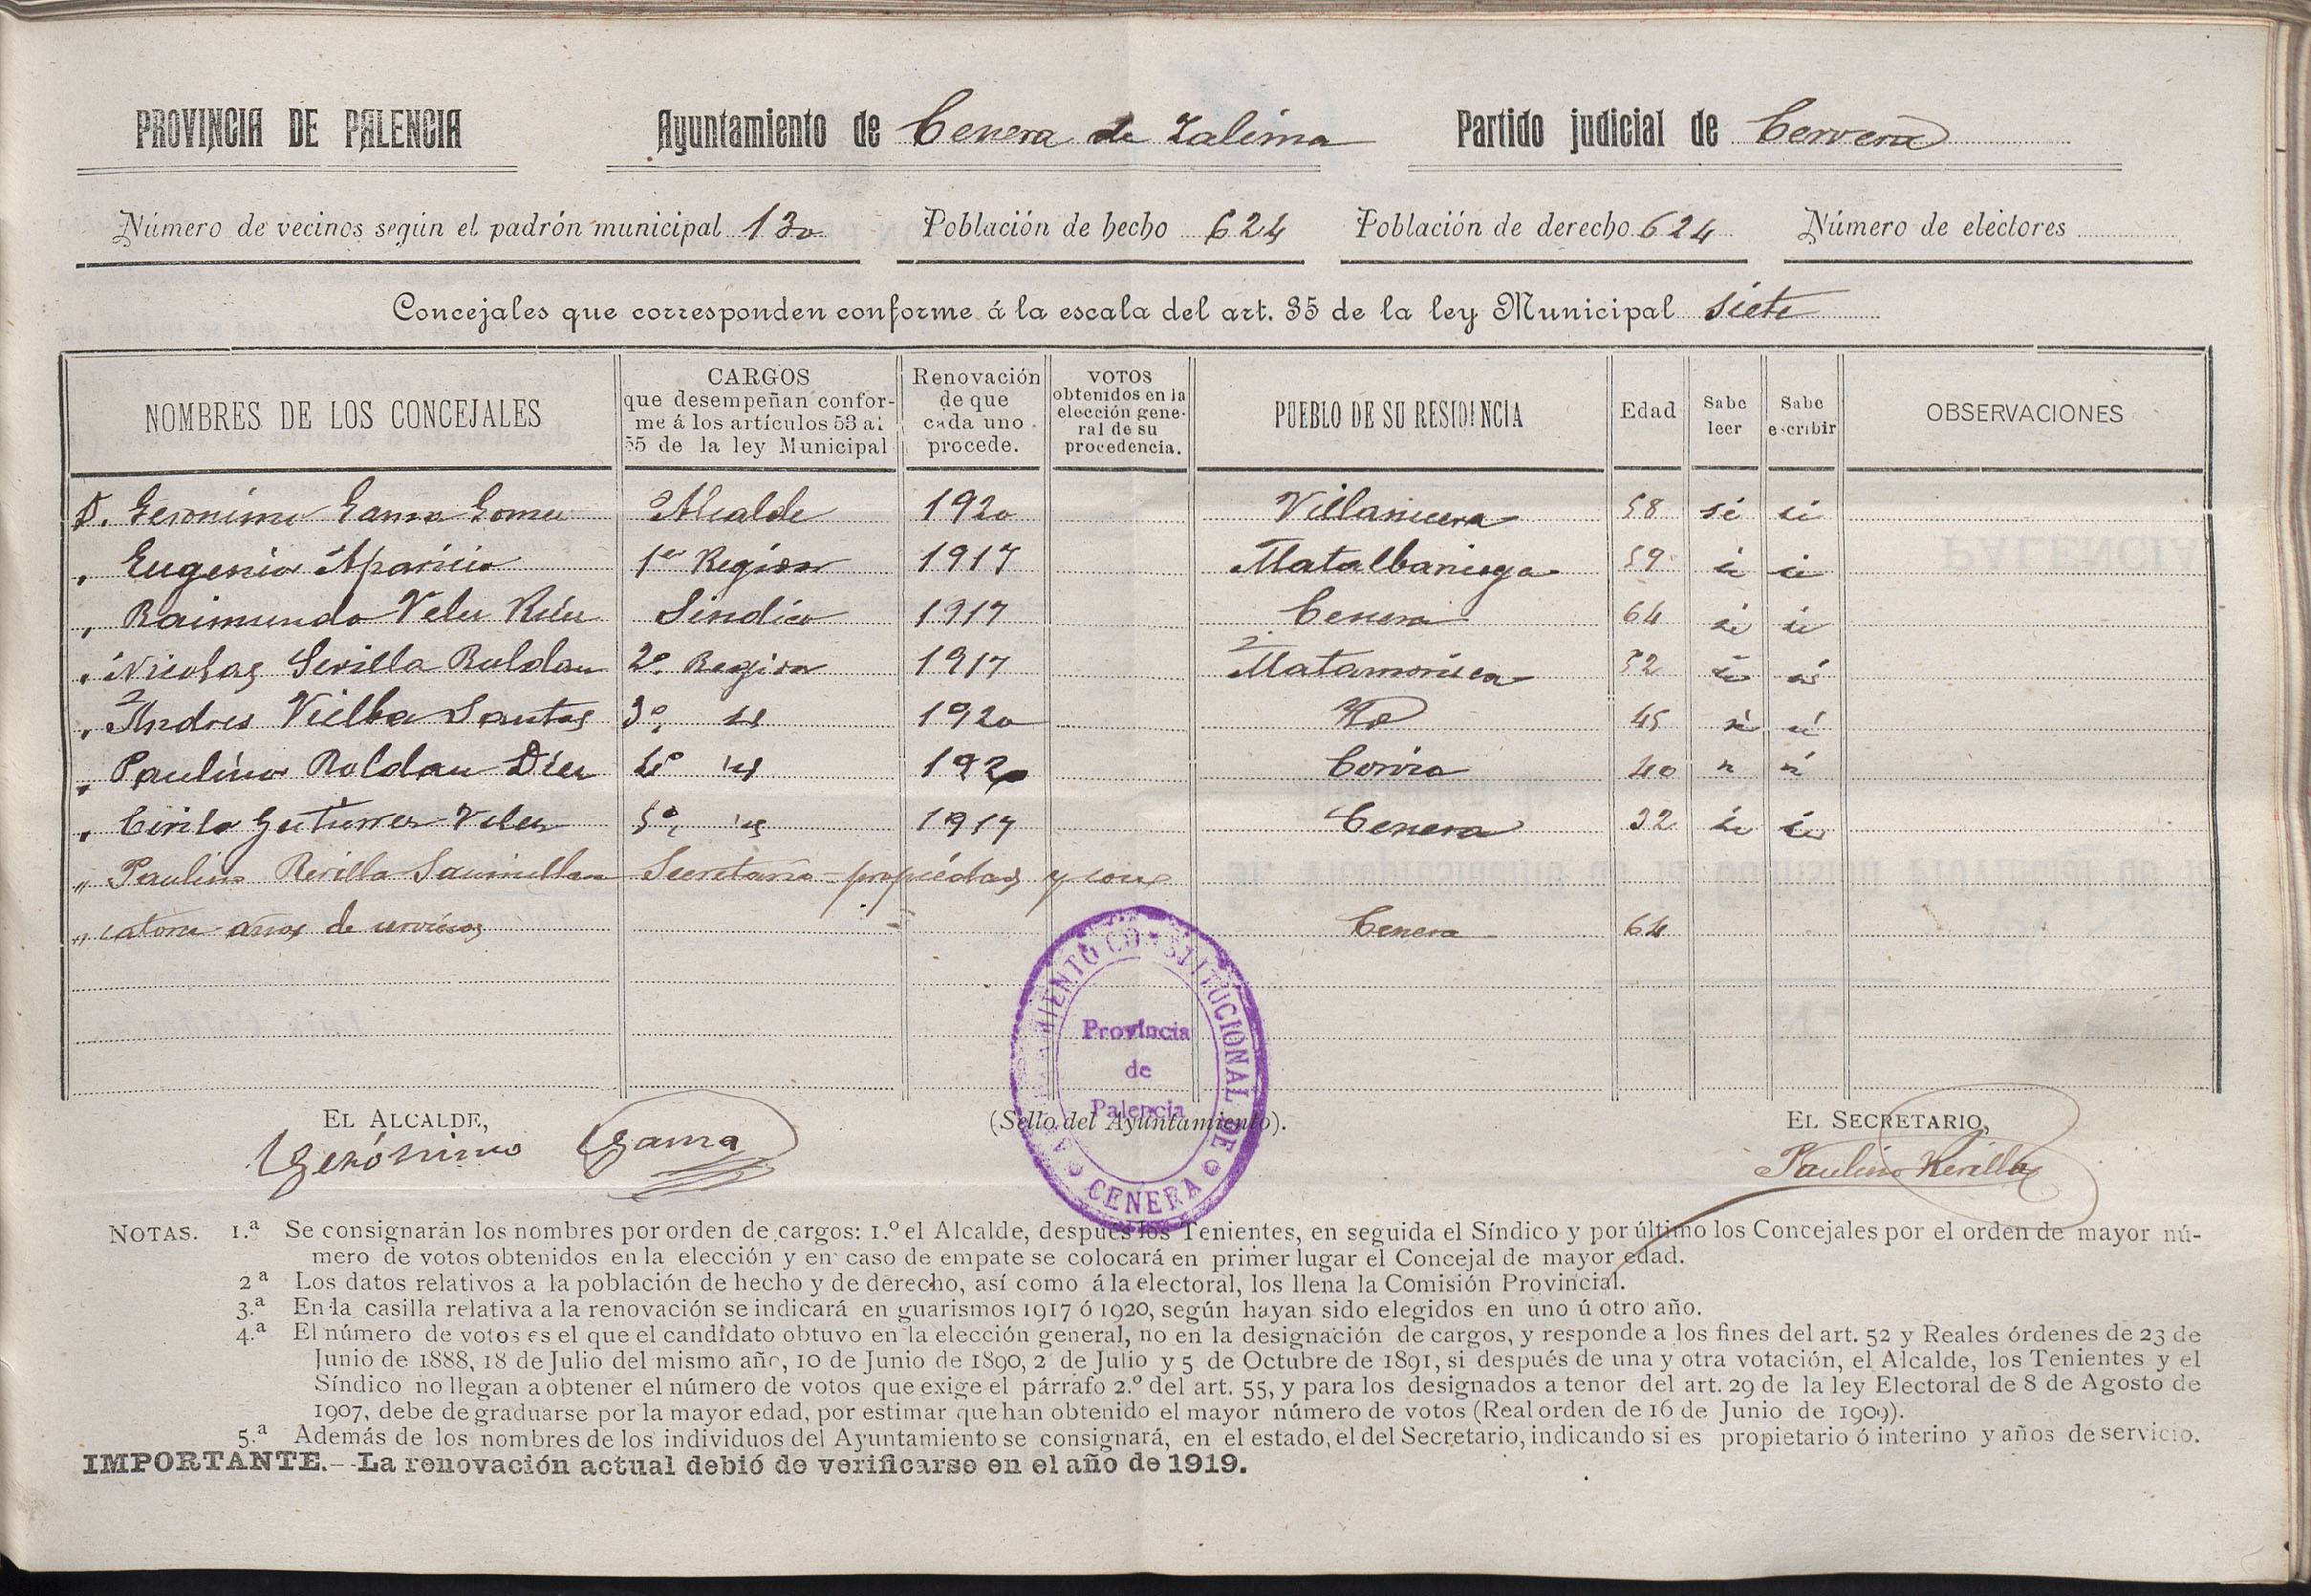 PROVINCIA DE PALENCIA Ayuntamiento de Cenera de Zalima Partido judicial de Cervera
Número de vecinos según el padrón municipal 130 Población de hecho 624 Población de derecho 624 Número de electores
Concejales que corresponden conforme á la escala del art. 35 de la ley Municipal siete
NOMBRES DE LOS CONCEJALES
CARGOS
que desempeñan confor-
me á los artículos 53 al
55 de la ley Municipal
Renovación
de que
cada uno
procede.
VOTOS
obtenidos en la
elección gene-
ral de su
procedencia.
PUEBLO DE SU RESIDENCIA
Edad
Sabe
leer
Sabe
escribir
OBSERVACIONES
D. Geronimo Gama Gomez Alcalde 1920 Villanueva 58 si si
" Eugenio Aparicio 1er Regidor 1917 Matalbaniega 59 si si
" Raimundo Velez Ruiz Sindico 1917 Cenera 64 si si
" Nicolas Sevilla Roldan 2º Regidor 1917 Matamorisca 52 si si
" Andres Vielba Santos 3º id 1920 Yd 45 si si
" Paulino Roldan Diez 4º id 1920 Corvio 40 si si
" Cirilo Gutierrez Velez 5º id 1917 Cenera 32 si si
" Paulino Revilla Secretario propiedad y con
" catorce años de servicios Cenera 64
AYUNTAMIENTO CONSTITUCIONAL DE
CENERA
Provincia
de
Palencia
EL ALCALDE, (Sello del Ayuntamiento). EL SECRETARIO,
Gerónimo Gama Paulino Revilla
NOTAS. 1.ª Se consignarán los nombres por orden de cargos: 1.º el Alcalde, después los Tenientes, en seguida el Síndico y por último los Concejales por el orden de mayor nú-
mero de votos obtenidos en la elección y en caso de empate se colocará en primer lugar el Concejal de mayor edad.
2ª Los datos relativos a la población de hecho y de derecho, así como á la electoral, los llena la Comisión Provincial.
3.ª En la casilla relativa a la renovación se indicará en guarismos 1917 ó 1920, según hayan sido elegidos en uno ú otro año.
4.ª El número de votos es el que el candidato obtuvo en la elección general, no en la designación de cargos, y responde a los fines del art. 52 y Reales órdenes de 23 de
Junio de 1888, 18 de Julio del mismo año, 10 de Junio de 1890, 2 de Julio y 5 de Octubre de 1891, si después de una y otra votación, el Alcalde, los Tenientes y el
Síndico no llegan a obtener el número de votos que exige el párrafo 2.º del art. 55, y para los designados a tenor del art. 29 de la ley Electoral de 8 de Agosto de
1907, debe de graduarse por la mayor edad, por estimar que han obtenido el mayor número de votos (Real orden de 16 de Junio de 1909).
5.ª Además de los nombres de los individuos del Ayuntamiento se consignará, en el estado, el del Secretario, indicando si es propietario ó interino y años de servicio.
IMPORTANTE.--La renovación actual debió de verificarse en el año de 1919.